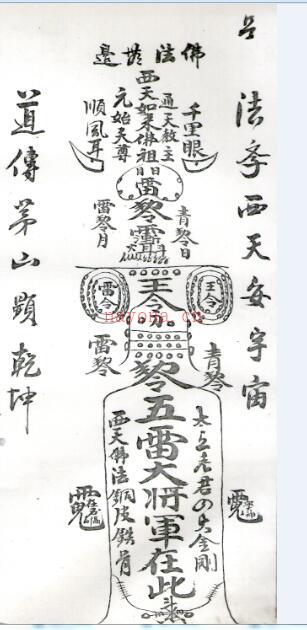 法季西天安宇宙
佛法無邊
千里眼
通天教主
西天如来佛祖
元始天尊
順風耳
雷
青黎日
黎
雷黎月
道傳茅山顯乾坤
王令
王令
雷令
nayona.cn
青黎
黎
雷黎
太上老君の大金剛
五雷大将軍在此
西天佛法銅皮鉄骨